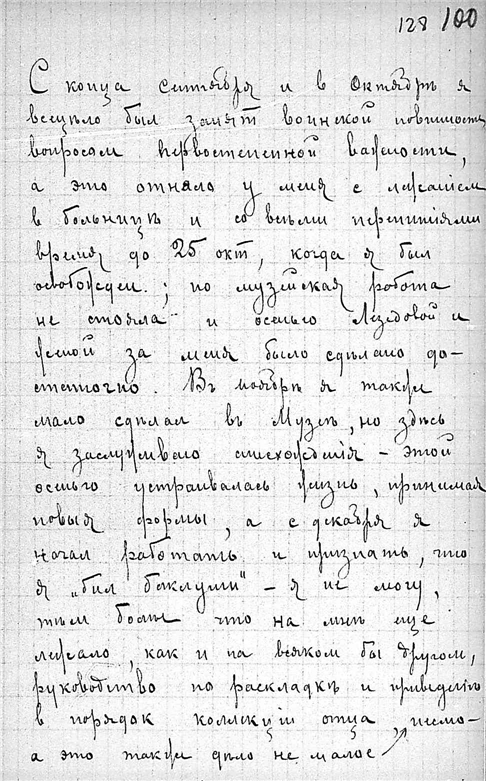 128 100
С конца сентября и в октябрѣ я
всецѣло был занят воинской повинностью,
вопросом первостепенной важности,
а это отняло у меня с лежанием
в больницѣ и со всѣми перипетіями
время до 25 окт, когда я был
освобожден.; но музейская работа
не стояла и осенью и
женой за меня было сдѣлано до-
статочно. Въ ноябрѣ я также
мало сдѣлал въ Музеѣ, но здѣсь
я заслуживаю снисхожденія – этой
осенью устраивалась жизнь, принимая
новыя формы, а с декабря я
начал работать и признать, что
я „бил баклуши" – я не могу,
тѣм болѣе что на мнѣ еще
лежало, как и на всяком бы другом,
руководство по раскладкѣ и приведенію
в порядок коллекціи отца,
а это также дѣло не малое